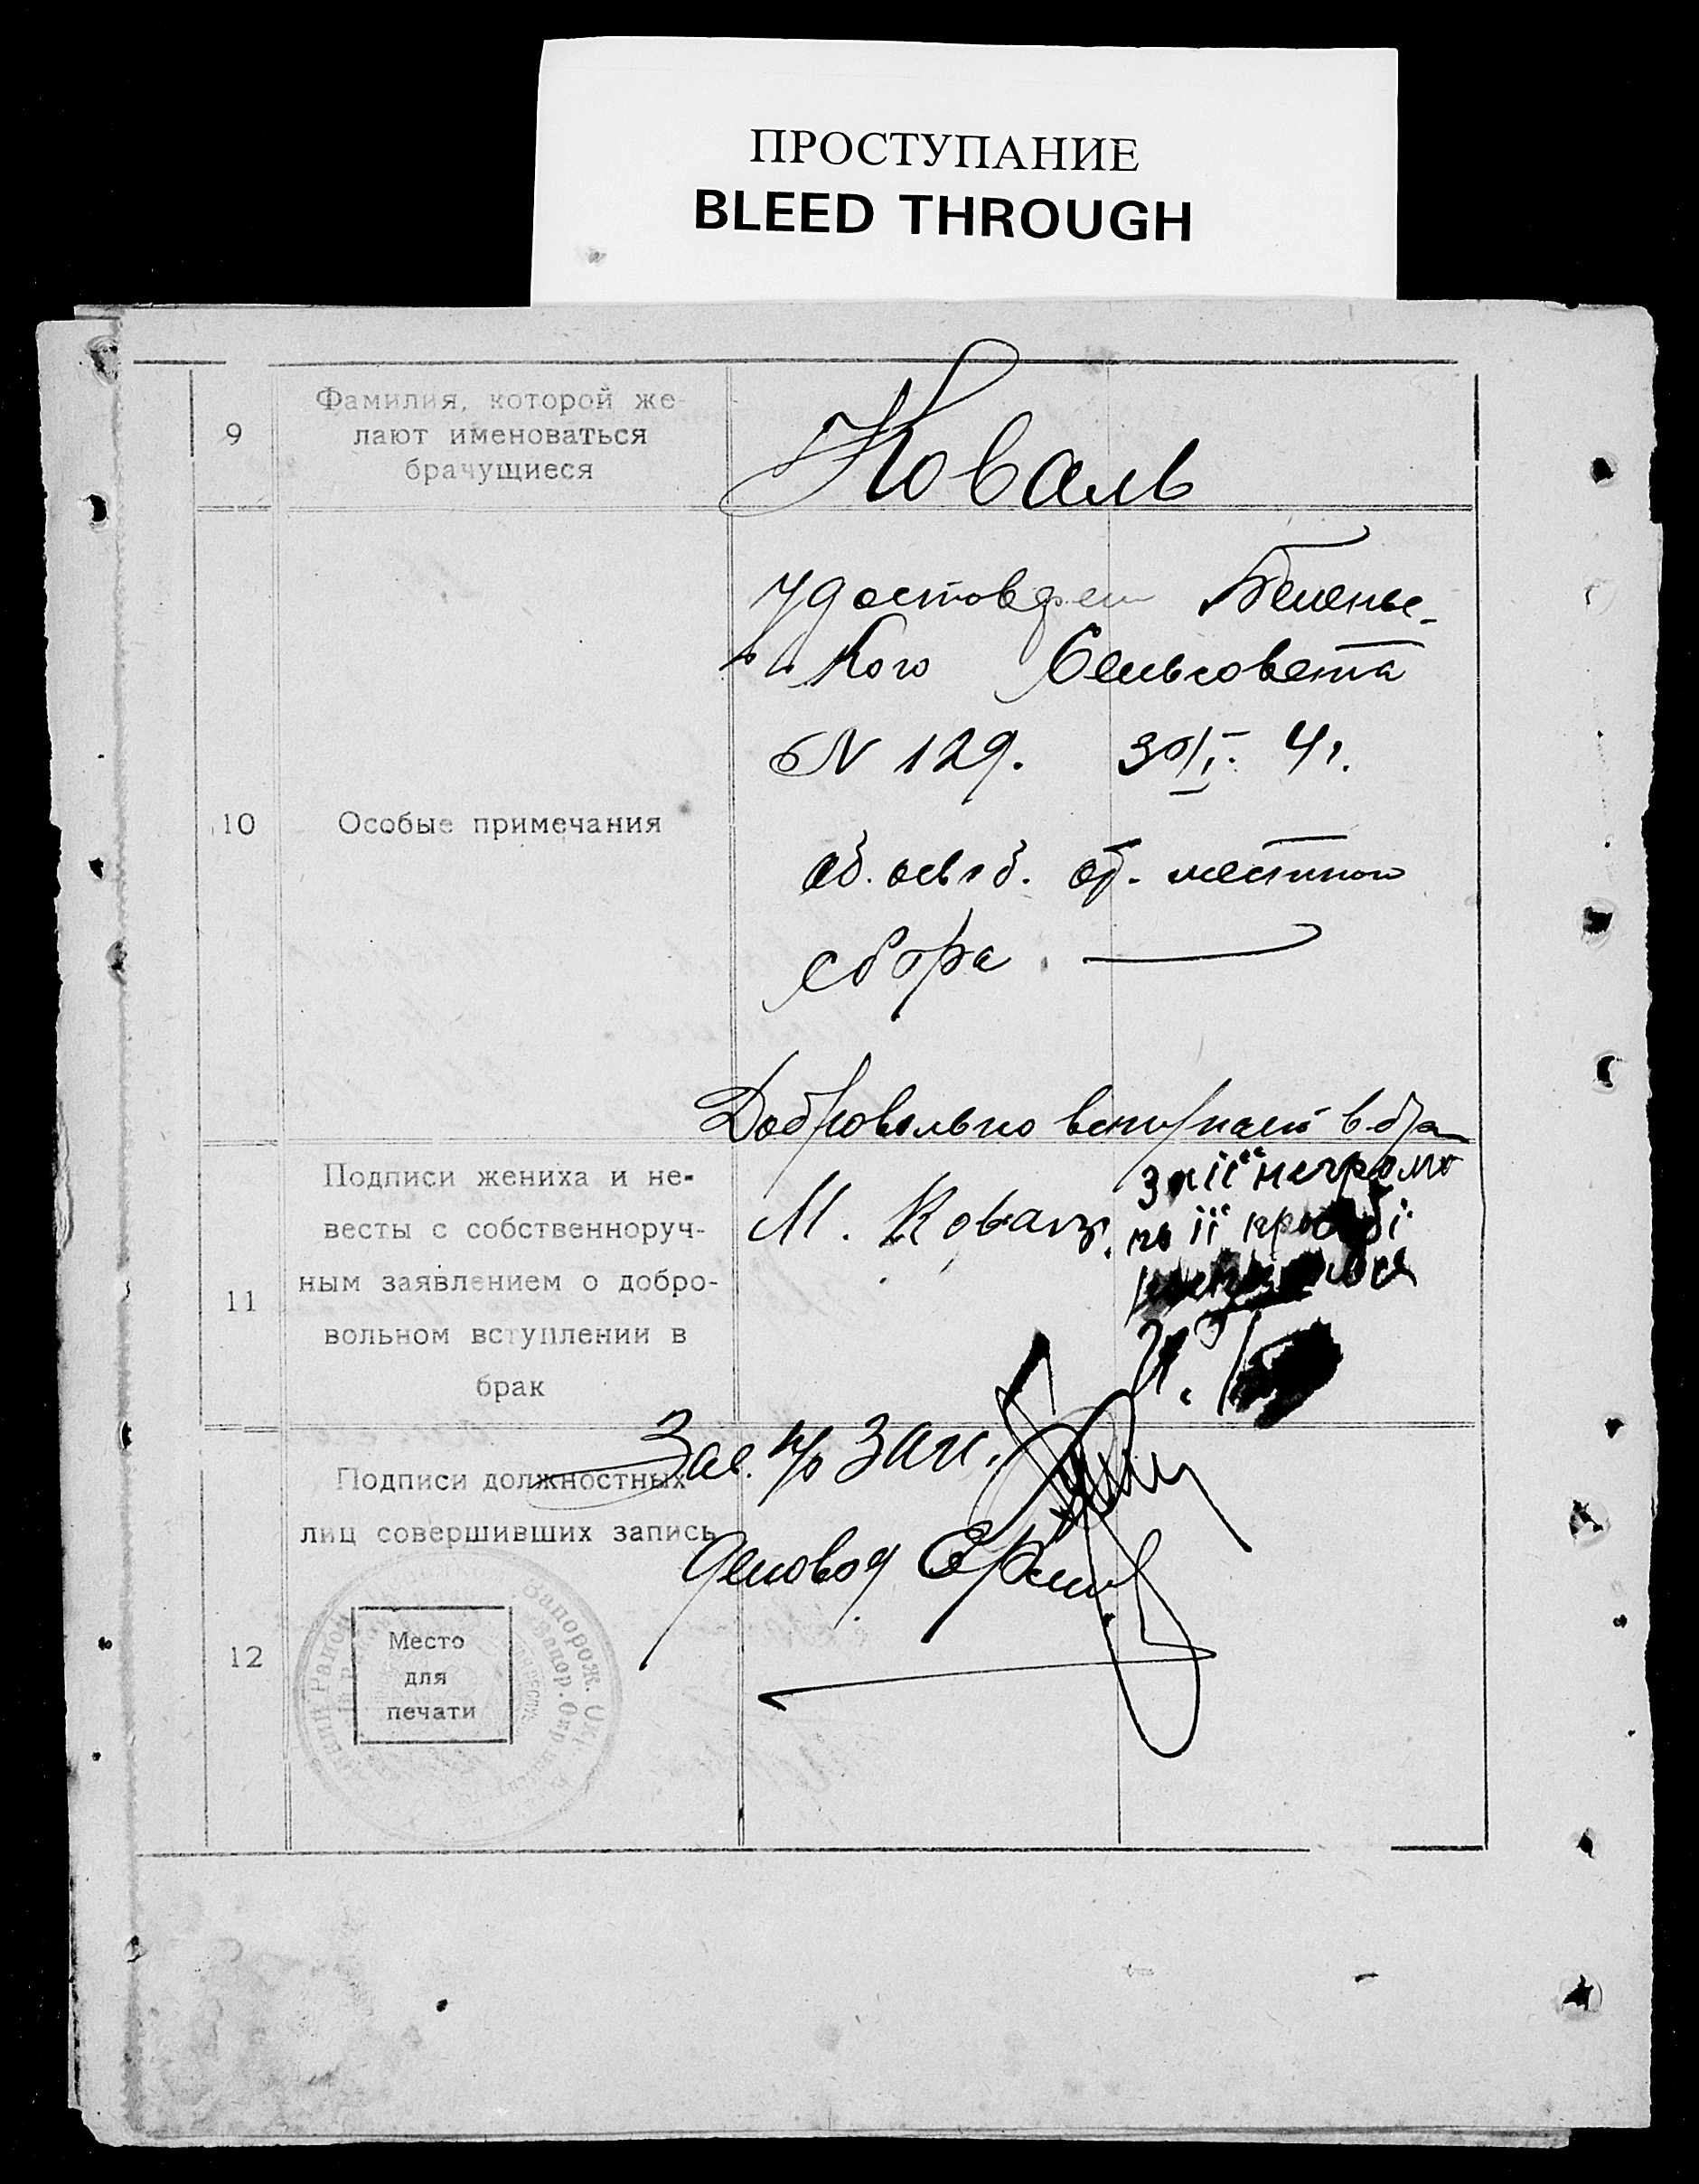 ПРОСТУПАНИЕ
BLEED THROUGH
9
Фамилия, которой же-
лают именоваться
брачущиеся
Коваль
10
Особые примечания
Удостоверен Беленьс-
кого Сельсовета
N 129. 30/I
об. освоб. от местного
сбора.
Добровольно вступаем в бра
11
Подписи жениха и не-
весты с собственноруч-
ным заявлением о добро-
вольном вступлении в
брак
М. Коваль
за її неграмо
по її просьбі
12
Подписи должностных
лиц совершивших запись
Зав. п/о Заг.
Деловод
Место
для
печати
Запорож. Окр.